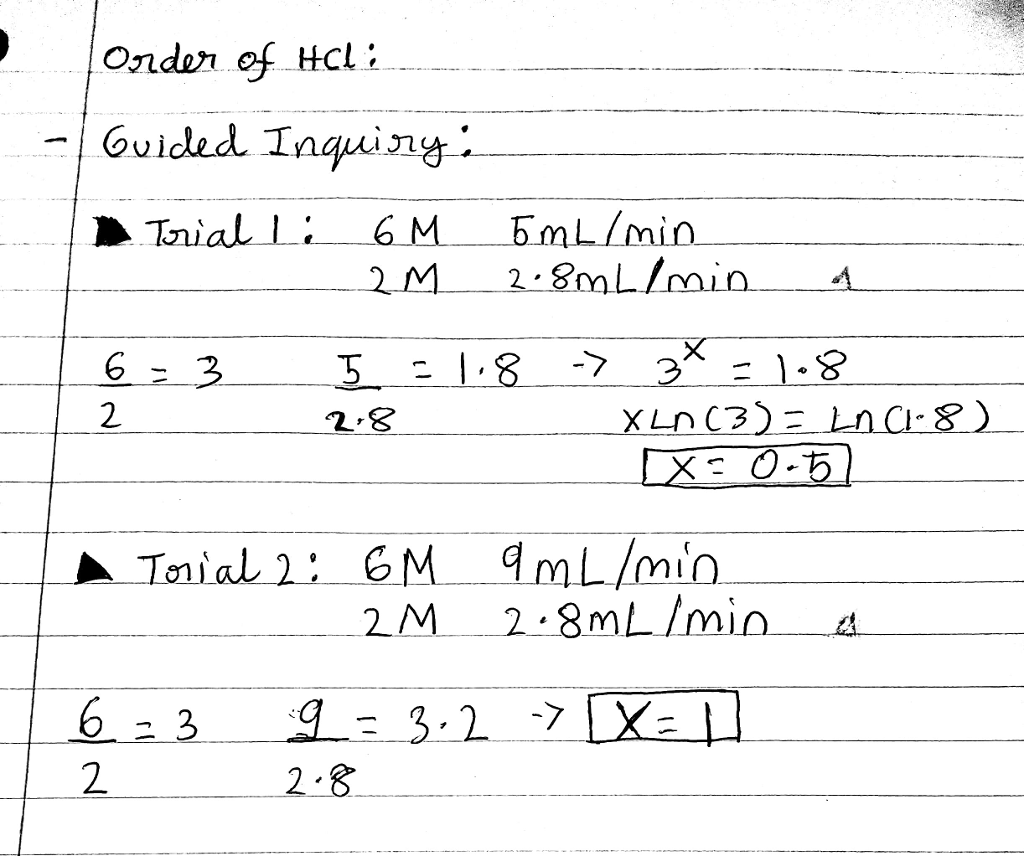 Order of HCl:
- Guided Inquiry:
Trial 1: 6 M 5 mL/min
2 M 2.8 mL/min
6/2 = 3 5/2.8 = 1.8 -> 3^x = 1.8
x Ln(3) = Ln(1.8)
x = 0.5
Trial 2: 6 M 9 mL/min
2 M 2.8 mL/min
6/2 = 3 9/2.8 = 3.2 -> x = 1